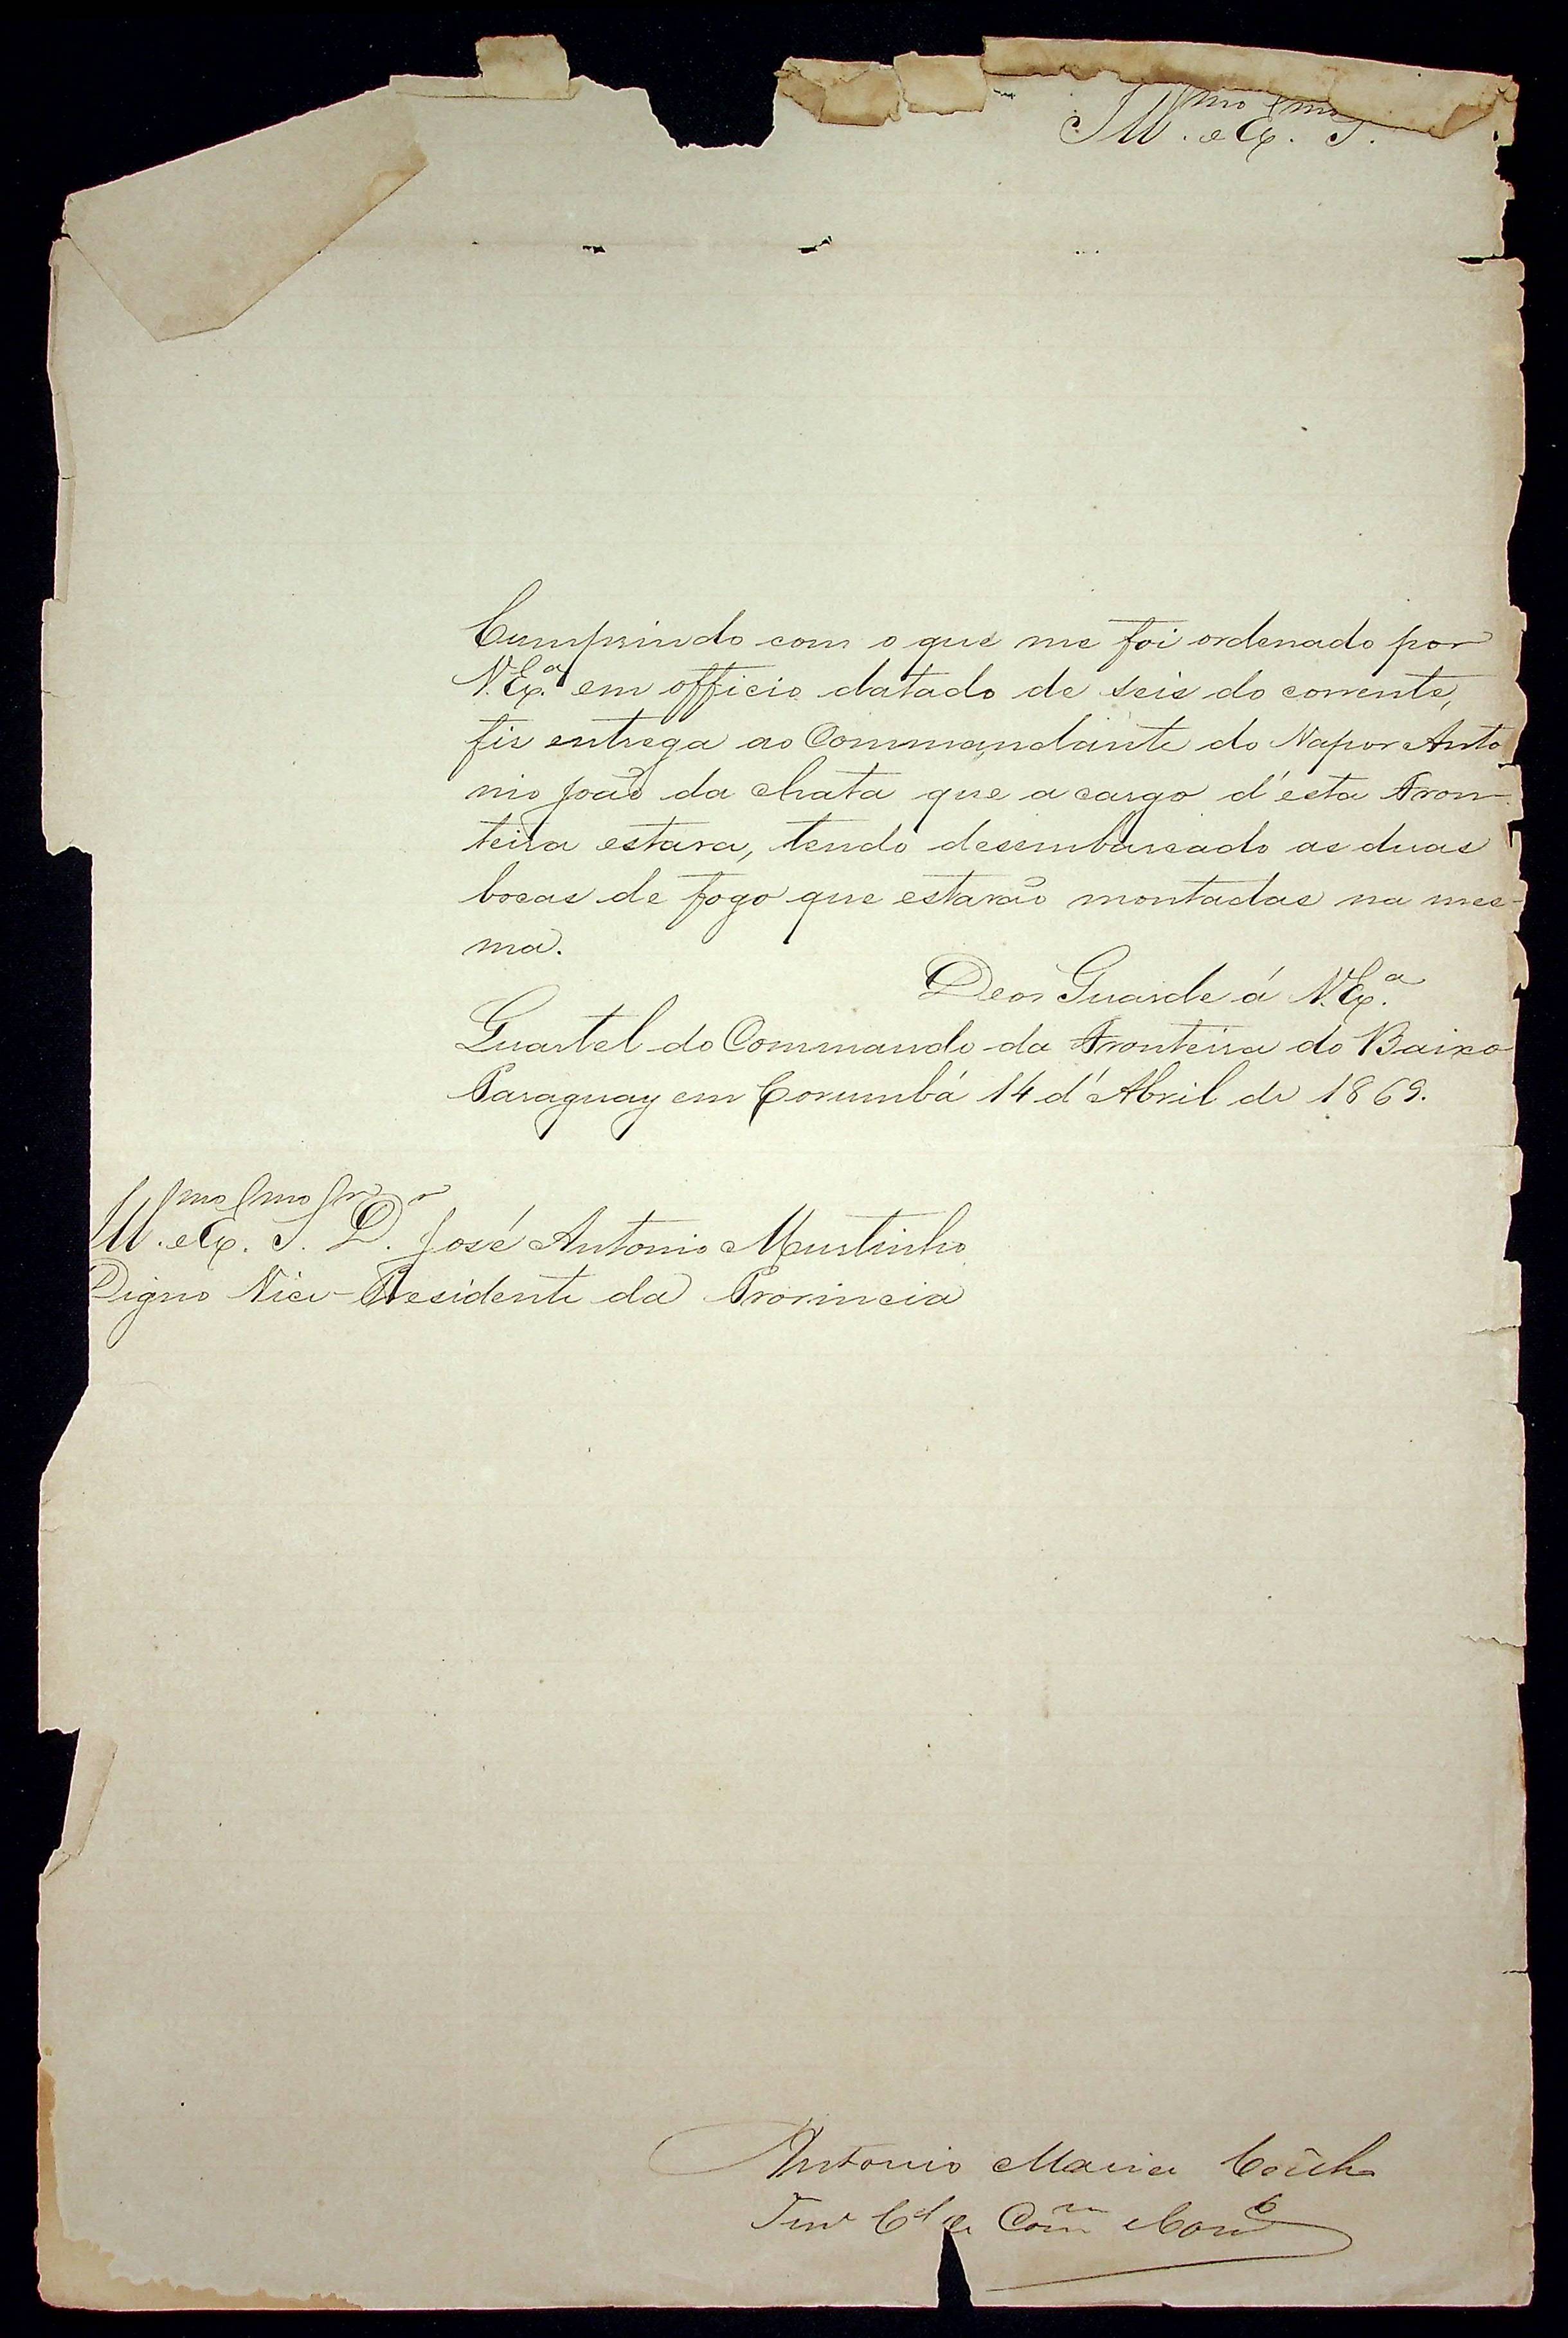 Ill.mo e Ex.mo S.
Cumprindo com o que me foi ordenado por
V. Ex.a em officio datado de seis do corrente,
fis entrega ao Commandante do Vapor Anto
nio João da chata que a cargo d'esta Fron-
teira estava, tendo desembarcado as duas
bocas de fogo que estavão montadas na mes-
ma.
Deos Guarde á V. Ex.a
Quartel do Commando da Fronteira do Baixo
Paraguay em Corumbá 14 d'Abril de 1869.
Ill.mo e Ex.mo S.nr D.r José Antonio Murtinho
Digno Vice-Presidente da Provincia
Antonio Maria Coelho
Ten.e C.el